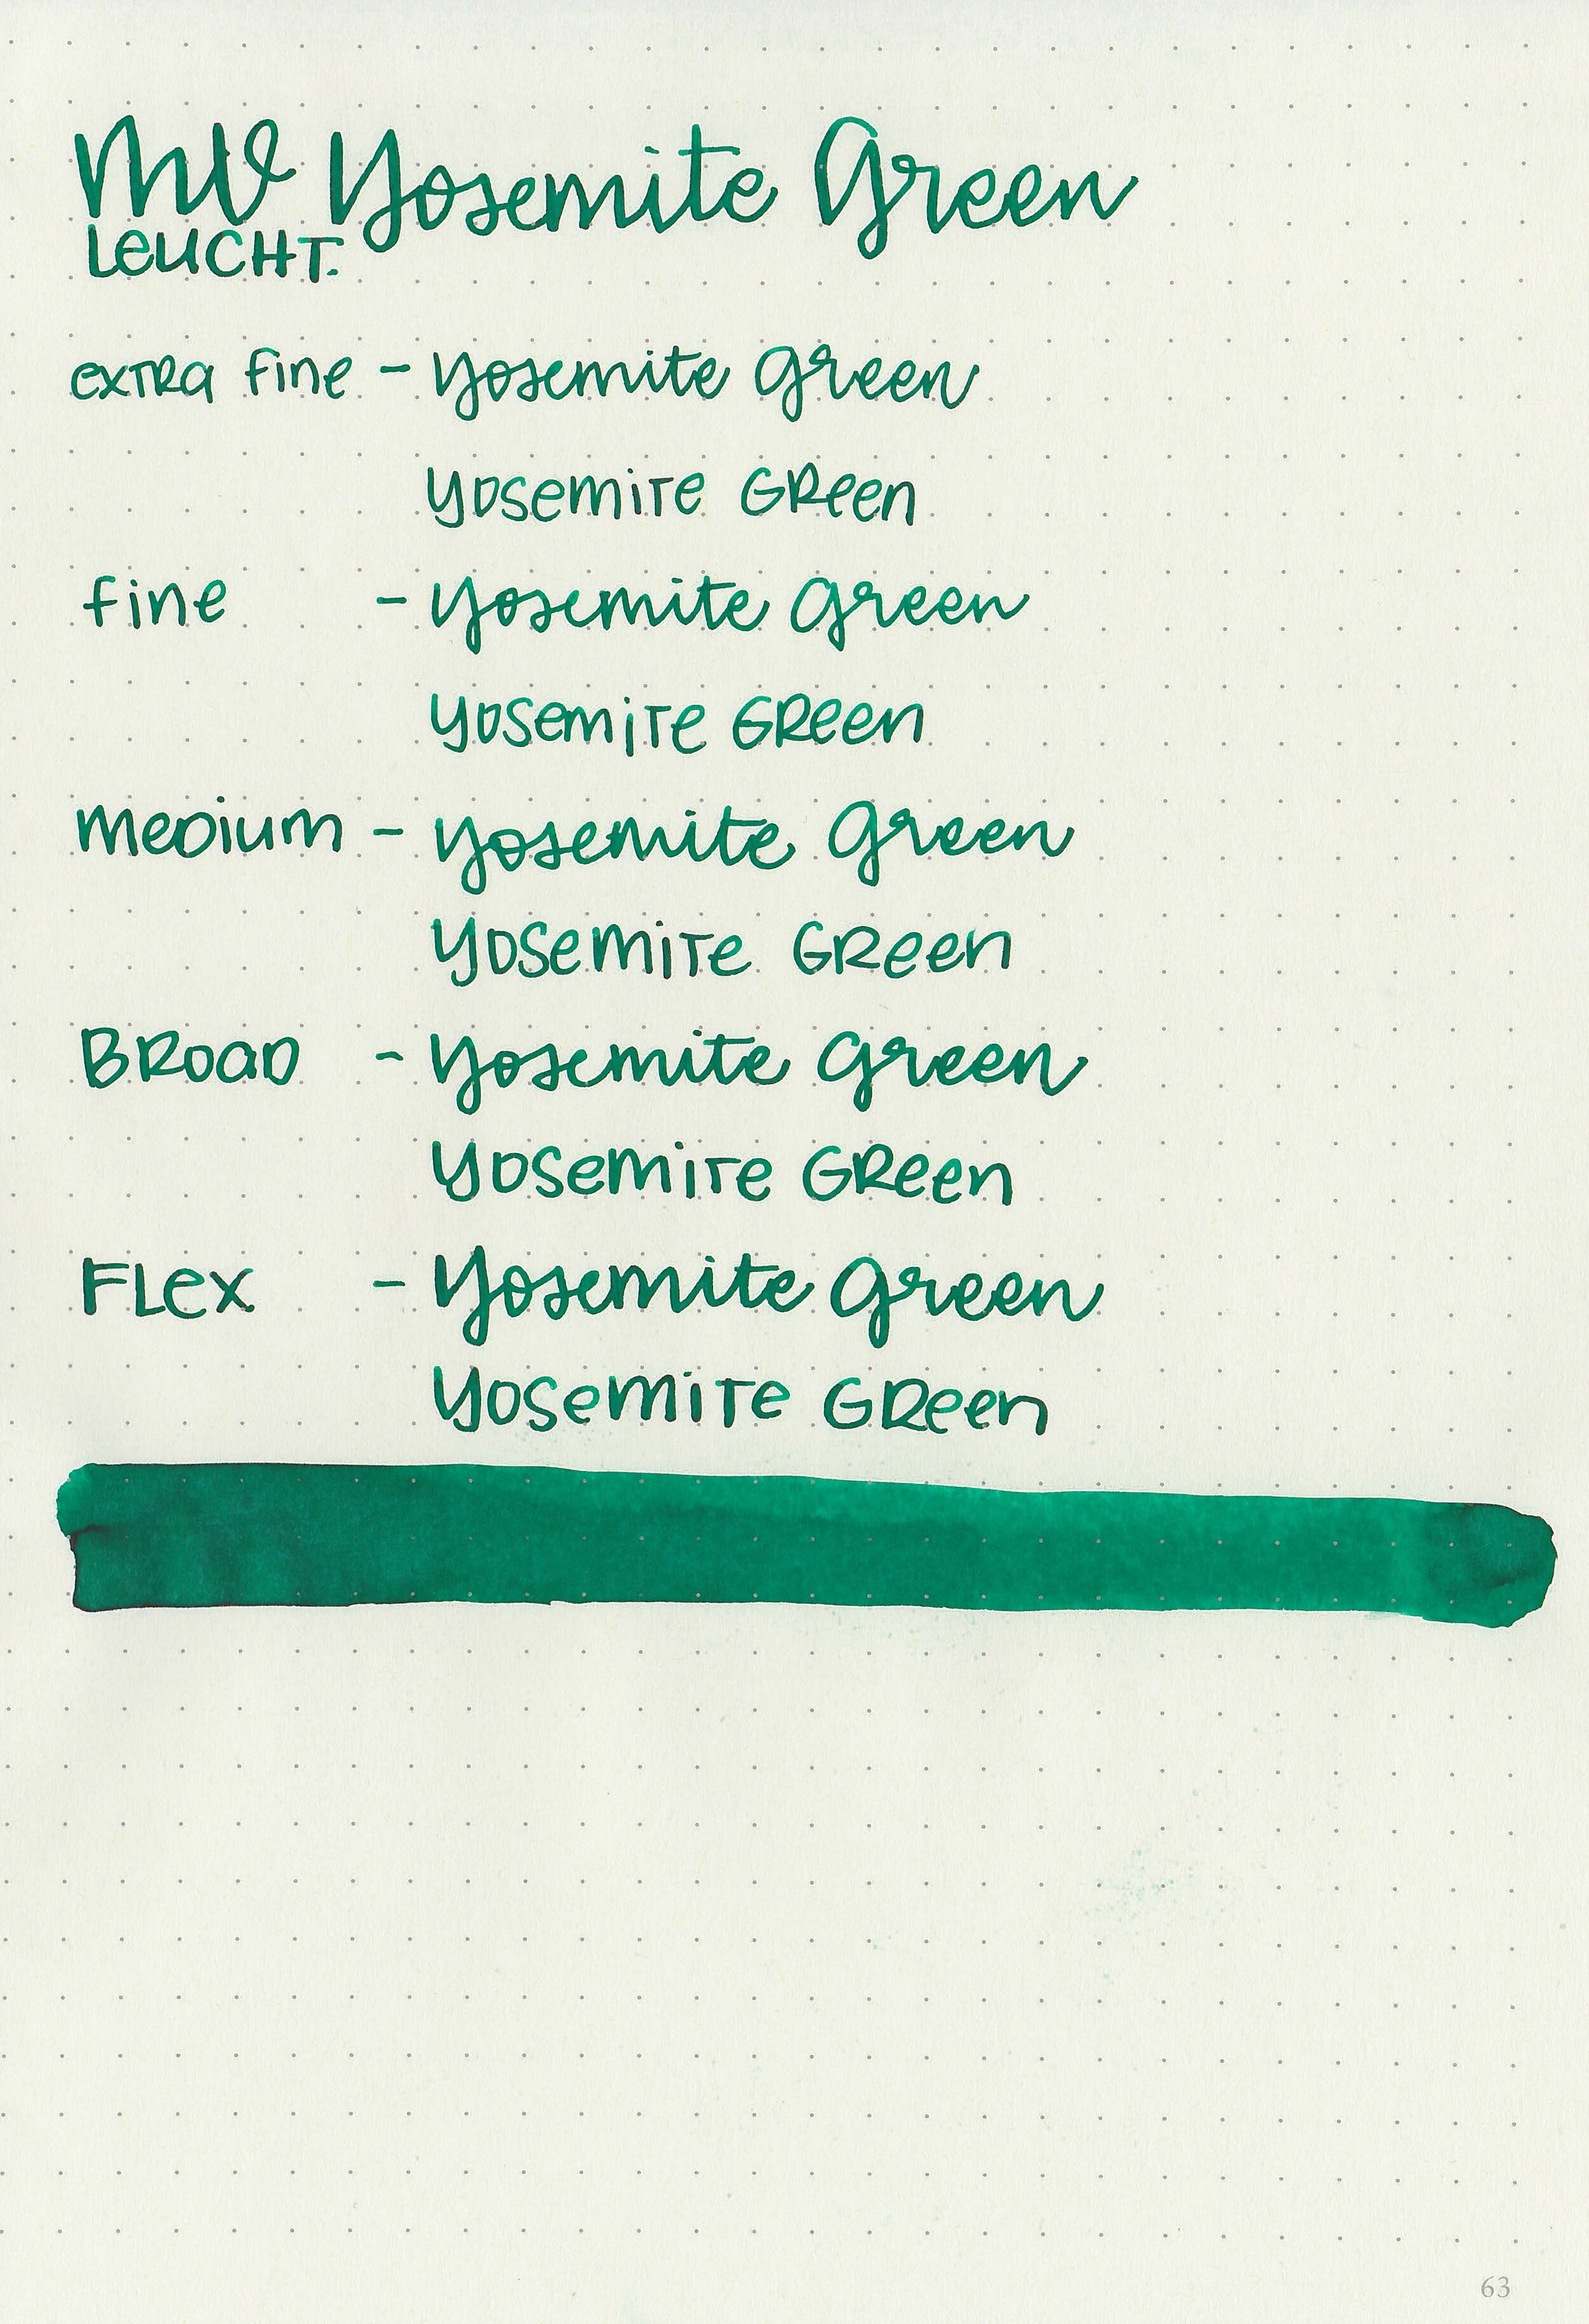 MV Yosemite Green
LEUCHT.
extra fine - Yosemite Green
Yosemite Green
fine - Yosemite Green
Yosemite Green
Medium - Yosemite Green
Yosemite Green
Broad - Yosemite Green
Yosemite Green
Flex - Yosemite Green
Yosemite Green
63